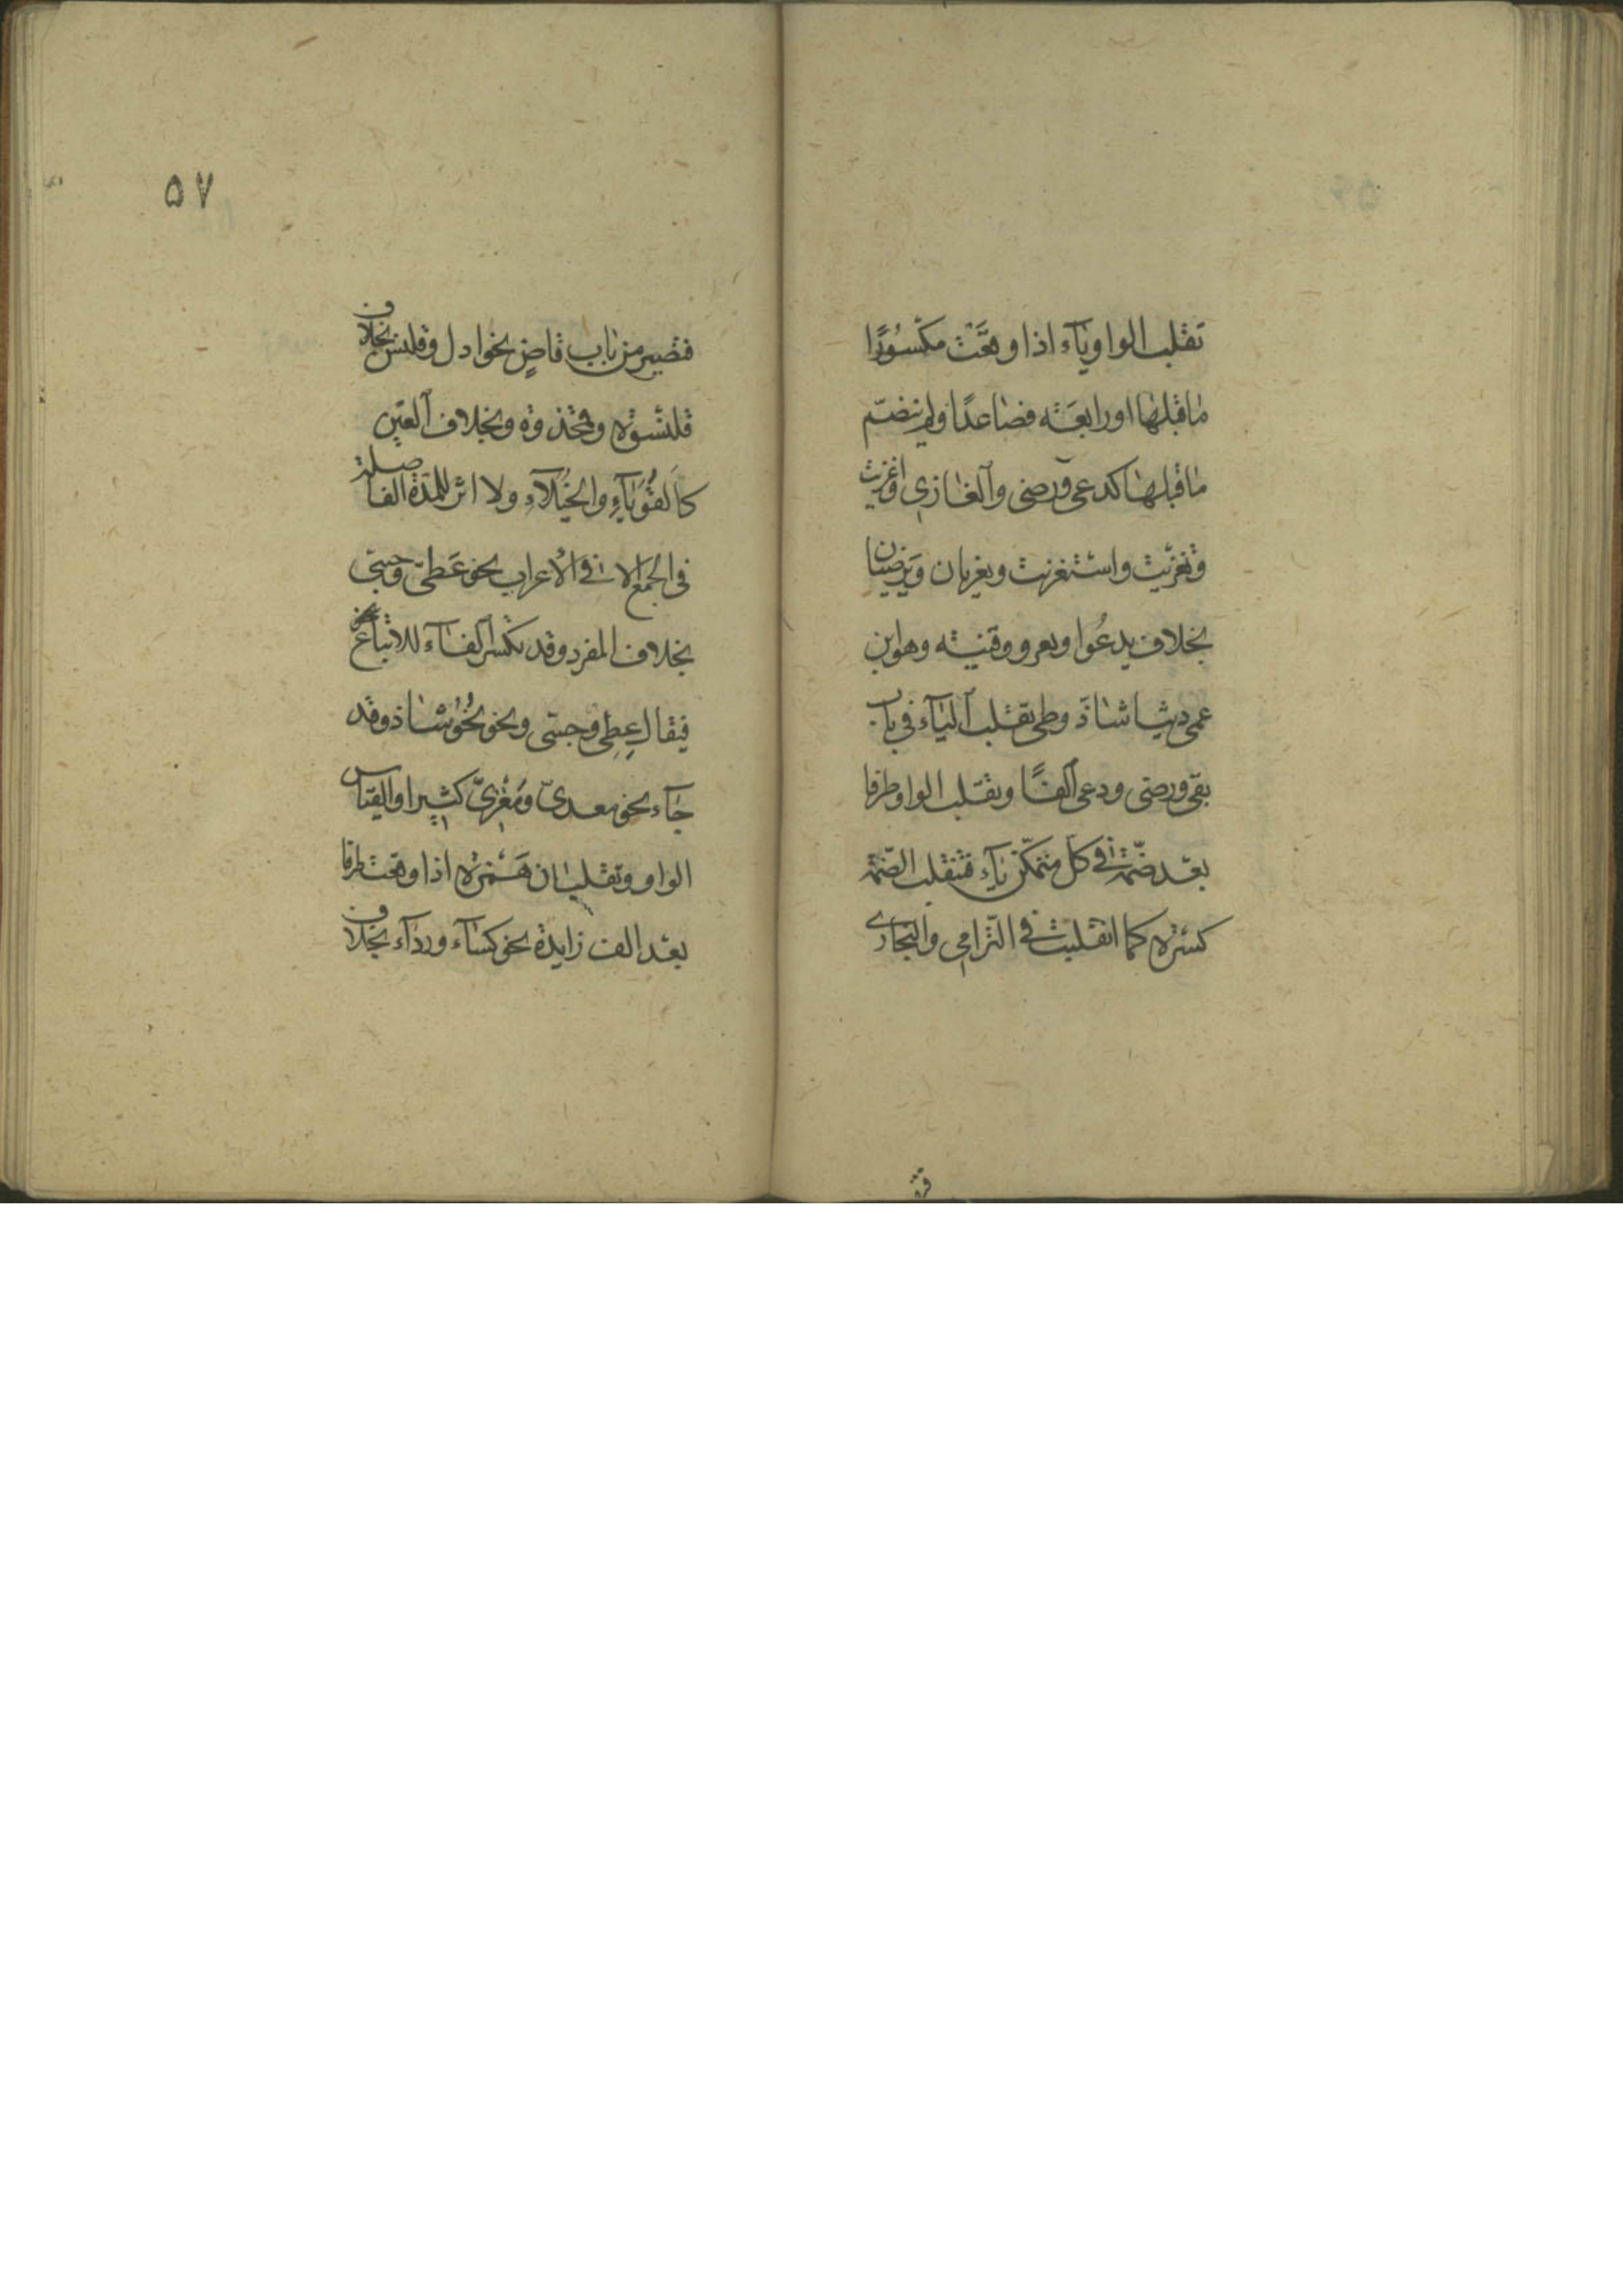 تقلب الواو ياء اذا وقعت مكسورًا
ماقبلها اورابعة فصاعدًا ولم ينضمّ
ماقبلها كدعى ورضى والغازى اغزيت
وتغزيت واستغزيت ويغزيان ويرضيان
بخلاف يدعوا ويغزو وقنيه وهو ابن
عمى دنيا شاذ وطى تقلب الياء فى باب
بقى ورضى ودعى الفًا وتقلب الواو طرفا
بعد ضمّة فى كل متمكّن ياء فتنقلب الضمّة
كسرة كما انقلبت فى الترامى والتجارى
٥٧
فتصير من باب قاض نحو ادل وقلنس بخلاف
قلنسوة وقمحذوة وبخلاف العين
كالقوباء والخيلاء ولا اثر للمدة الفاصلة
فى الجمع الا فى الاعراب نحو عطىّ وجثىّ
بخلاف المفرد وقد تكسر الفاء للاتباع
فيقال عِطى وجثى ونحو نحوّ شاذ وقد
جاء نحو معدىّ ومغزىّ كثيرا والقياس
الواو وتقلبان همزة اذا وقعت طرفا
بعد الف زايدة نحو كساء ورداء بخلاف